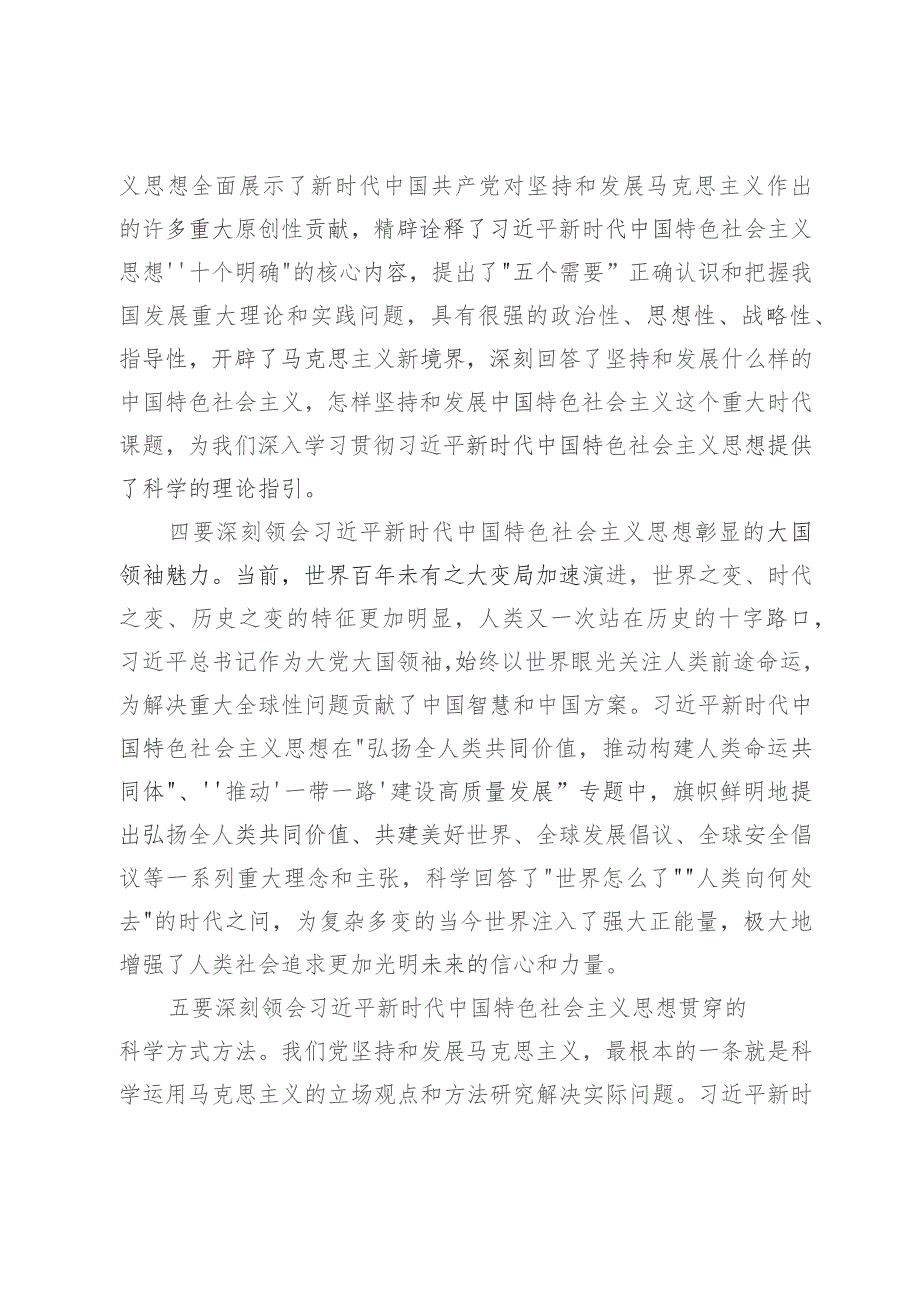 义思想全面展示了新时代中国共产党对坚持和发展马克思主义作出
的许多重大原创性贡献，精辟诠释了习近平新时代中国特色社会主义
思想''十个明确"的核心内容，提出了"五个需要”正确认识和把握我
国发展重大理论和实践问题，具有很强的政治性、思想性、战略性、
指导性，开辟了马克思主义新境界，深刻回答了坚持和发展什么样的
中国特色社会主义，怎样坚持和发展中国特色社会主义这个重大时代
课题，为我们深入学习贯彻习近平新时代中国特色社会主义思想提供
了科学的理论指引。
四要深刻领会习近平新时代中国特色社会主义思想彰显的大国
领袖魅力。当前，世界百年未有之大变局加速演进，世界之变、时代
之变、历史之变的特征更加明显，人类又一次站在历史的十字路口，
习近平总书记作为大党大国领袖,始终以世界眼光关注人类前途命运，
为解决重大全球性问题贡献了中国智慧和中国方案。习近平新时代中
国特色社会主义思想在"弘扬全人类共同价值，推动构建人类命运共
同体"、''推动'一带一路'建设高质量发展”专题中，旗帜鲜明地提
出弘扬全人类共同价值、共建美好世界、全球发展倡议、全球安全倡
议等一系列重大理念和主张，科学回答了"世界怎么了""人类向何处
去"的时代之问，为复杂多变的当今世界注入了强大正能量，极大地
增强了人类社会追求更加光明未来的信心和力量。
五要深刻领会习近平新时代中国特色社会主义思想贯穿的
科学方式方法。我们党坚持和发展马克思主义，最根本的一条就是科
学运用马克思主义的立场观点和方法研究解决实际问题。习近平新时